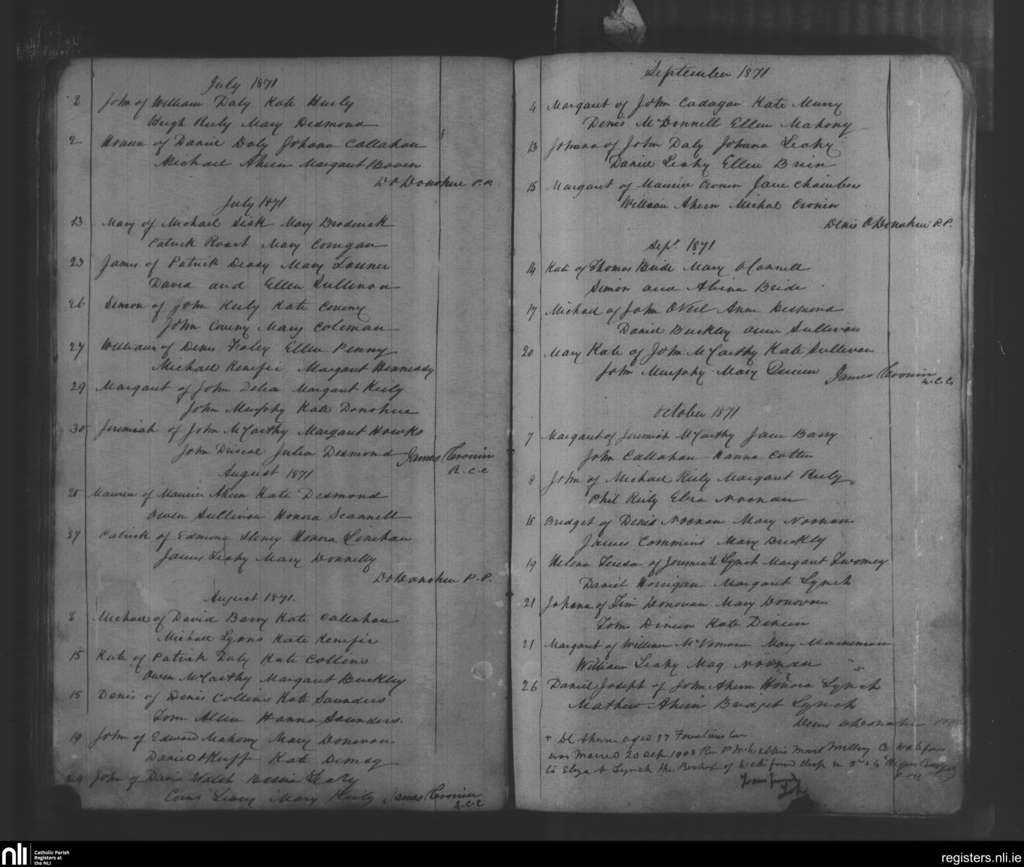 July 1871
2 John of William Daly Kate Hurly
Hugh Kiely Mary Desmond
2 Honora of Daniel Daly Johana Callahan
Michael Ahern Margaret Bowen
D O Donohue P.P.
July 1871
13 Mary of Michael Sisk Mary Broderick
Patrick Roast Mary Corrigan
23 James of Patrick Deasy Mary
David and Ellen Sullivan
26 Simon of John Kiely Kate
John Mary Coleman
27 William of Denis Foley Ellen Penny
Michael Kenefic Margaret Hennessy
29 Margaret of John Delia Margaret Kiely
John Murphy Kate Donohue
30 Jeremiah of John McCarthy Margaret Hawks
John Driscol Julia Desmond James Cronin
R.C.C.
August 1871
of Maurice Ahern Kate Desmond
Owen Sullivan Honora Scannell
27 Patrick of Edmond Honora Linehan
James Leahy Mary Donnelly
D O Donohue P.P.
August 1871.
8 Michael of David Barry Kate Callahan
Michael Lyons Kate Kenefic
15 Kate of Patrick Daly Kate Collins
Owen McCarthy Margaret Buckley
15 Denis of Denis Collins Kate Saunders
Tom Allen Hanna Saunders.
19 John of Edward Mahony Mary Donovan
Daniel Kate
24 John of David Walsh Bessie Leahy
Mary Kiely James Cronin
R.C.C
September 1871
4 Margaret of John Cadagan Kate Murry
Denis McDonnell Ellen Mahony
13 Johana of John Daly Johana Leahy
Daniel Leahy Ellen Brien
15 Margaret of Maurice Cronin Jane Chambers
William Ahern Michal Cronin
Denis O'Donohue P.P.
Sept. 1871
14 Kate of Thomas Bride Mary O Connell
Simon and Abina Bride
17 Michael of John O'Neil Anne Desmond
Daniel Buckley Anne Sullivan
20 Mary Kate of John McCarthy Kate Sullivan
John Murphy Mary James Cronin
R.C.C.
October 1871
7 Margaret of Jeremiah McCarthy Jane Barry
John Callahan Hanna Cotter
8 John of Michael Kiely Margaret Kiely
Phil Kiely Eliza Noonan
18 Bridget of Denis Noonan Mary Noonan
James Commins Mary Buckley
19 Helena Teresa of Jeremiah Lynch Margaret Twomey
Daniel Horrigan Margaret Lynch
21 Johana of Tim Donovan Mary Donovan
Tom Dineen Kate Dineen
21 Margaret of William McNamara Mary
William Leahy Mag Noonan
26 Daniel Joseph of John Ahern Honora Lynch
Mathew Ahern Bridget Lynch
Denis O'Donohue P.P.
Ahern aged 37
was Married 20 Oct 1908
to Eliza Lynch the
nli Catholic Parish
Registers at
the NLI
registers.nli.ie